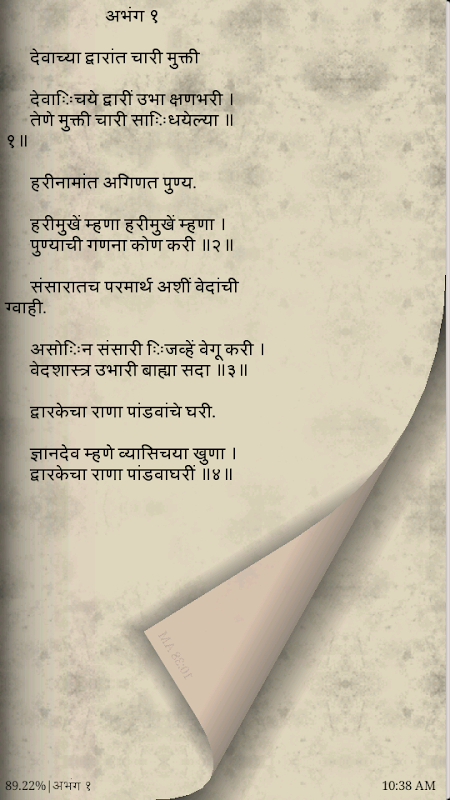 अभंग १
देवाच्या द्वारांत चारी मुक्ती
देवािचये द्वारीं उभा क्षणभरी ।
तेणे मुक्ती चारी सािधयेल्या ॥
१॥
हरीनामांत अगिणत पुण्य.
हरीमुखें म्हणा हरीमुखें म्हणा ।
पुण्याची गणना कोण करी ॥२॥
संसारातच परमार्थ अशीं वेदांची
ग्वाही.
असोिन संसारी िजव्हें वेगू करी ।
वेदशास्त्र उभारी बाह्या सदा ॥३॥
द्वारकेचा राणा पांडवांचे घरी.
ज्ञानदेव म्हणे व्यासिचया खुणा ।
द्वारकेचा राणा पांडवाघरीं ॥४॥
89.22%|अभंग १
10:38 AM